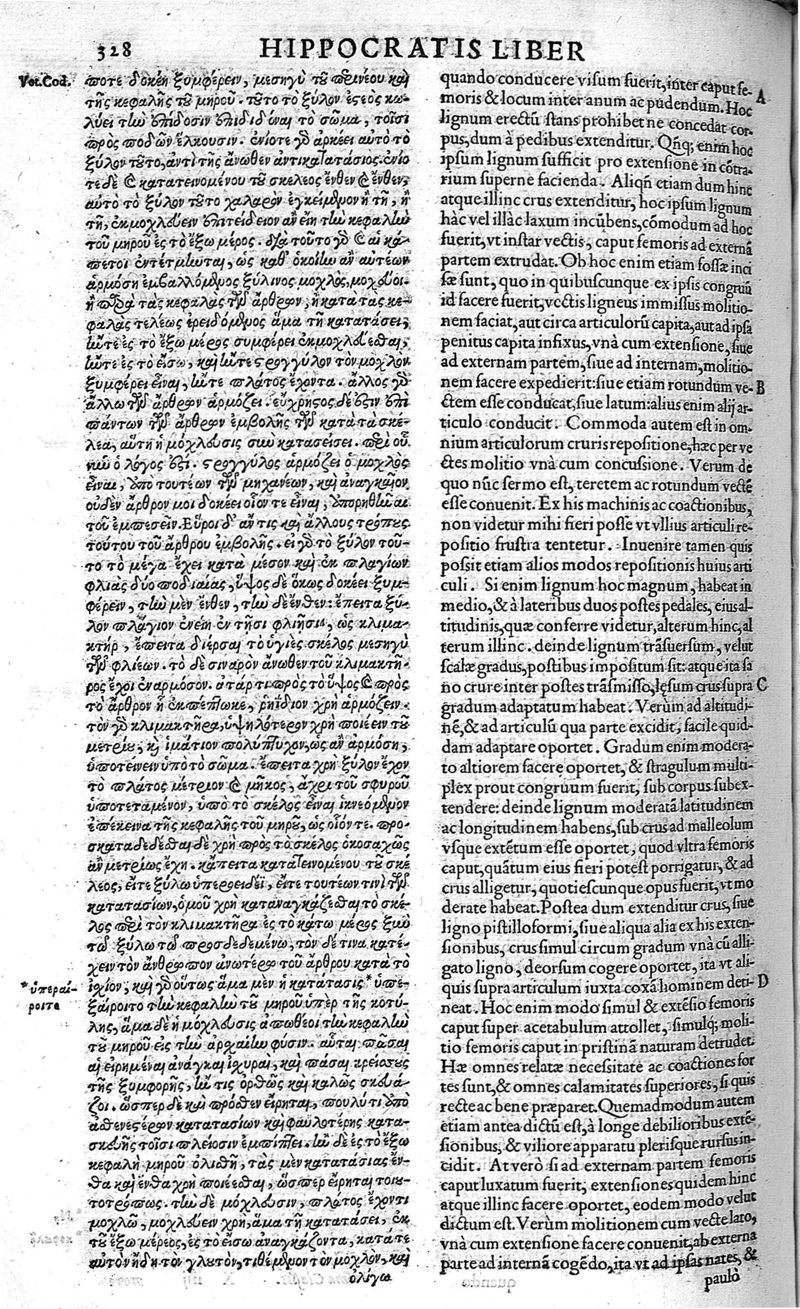 328 HIPPOCRATIS LIBER
Vet. Cod.
ποτε δοκέῃ ξυμφέρειν, μεσηγὺ τοῦ περινέου καὶ
τῆς κεφαλῆς τοῦ μηροῦ. τοῦτο τὸ ξύλον ἑστεὸς κω-
λύει τὴν ἐπίδοσιν ἐπιδιδόναι τὸ σῶμα, τοῖσι
πρὸς ποδῶν ἕλκουσιν. ἐνίοτε γὰρ ἀρκέει αὐτὸ τὸ
ξύλον τοῦτο, ἀντὶ τῆς ἄνωθεν ἀντικατατάσιος. ἐνίο
τε δὲ καὶ κατατεινομένου τοῦ σκέλεος ἔνθεν καὶ ἔνθεν,
αὐτὸ τὸ ξύλον τοῦτο χαλαρὸν ἐγκείμενον ἢ τῇ, ἢ
τῇ, ἐκμοχλεύειν ἐπιτήδειον ἂν εἴη τὴν κεφαλὴν
τοῦ μηροῦ ἐς τὸ ἔξω μέρος. διὰ τοῦτο γὰρ καὶ αἱ κά-
πετοι ἐντέτμηνται, ὡς καθ' ὁκοίην ἂν αὐτέων
ἁρμόσῃ ἐμβαλλόμενος ξύλινος μοχλὸς, μοχλεύοι.
ἢ παρὰ τὰς κεφαλὰς τῶν ἄρθρων, ἢ κατὰ τὰς κε-
φαλὰς τελέως ἐρειδόμενος ἅμα τῇ κατατάσει,
ἤν τε ἐς τὸ ἔξω μέρος συμφέρει ἐκμοχλεύεσθαι,
ἤν τε ἐς τὸ εἴσω, καὶ ἤν τε στρογγύλον τὸν μοχλὸν
ξυμφέρει εἶναι, ἤν τε πλάτος ἔχοντα. ἄλλος γὰρ
ἄλλῳ τῶν ἄρθρων ἁρμόζει. εὔχρηστος δέ ἐστιν ἐπὶ
πάντων τῶν ἄρθρων ἐμβολῆς τῶν κατὰ τὰ σκέ-
λεα, αὕτη ἡ μόχλευσις σὺν κατατάσει. περὶ οὗ
νῦν ὁ λόγος ἐστὶ. στρογγύλος ἁρμόζει ὁ μοχλὸς
εἶναι, ὑπὸ τουτέων τῶν μηχανέων, καὶ ἀναγκαίων
οὐδὲν ἄρθρον μοι δοκέει οἷόν τε εἶναι, ἀπορηθῆναι
τοῦ ἐμπεσεῖν. Εὕροι δ' ἄν τις καὶ ἄλλους τρόπους
τούτου τοῦ ἄρθρου ἐμβολῆς. εἰ γὰρ τὸ ξύλον τοῦ-
το τὸ μέγα ἔχει κατὰ μέσον καὶ ἐκ πλαγίων
φλιὰς δύο ποδιαίας, ὕψος δὲ ὅκως δοκέει ξυμ-
φέρειν, τὴν μὲν ἔνθεν, τὴν δὲ ἔνθεν: ἔπειτα ξύ-
λον πλάγιον ἐνείη ἐν τῇσι φλιῇσιν, ὡς κλιμα-
κτὴρ, ἔπειτα διέρσαι τὸ ὑγιὲς σκέλος μεσηγὺ
τῶν φλιέων. τὸ δὲ σιναρὸν ἄνωθεν τοῦ κλιμακτῆ-
ρος ἔχοι ἐναρμόσον. ἀτάρτι πρὸς τὸ ὕψος καὶ πρὸς
τὸ ἄρθρον ᾗ ἐκπέπτωκε, ῥηΐδιον χρὴ ἁρμόζειν.
τὸν γὰρ κλιμακτῆρα, ὑψηλότερον χρὴ ποιέειν τοῦ
μετρίου, καὶ ἱμάτιον πολύπτυχον, ὡς ἂν ἁρμόσῃ,
ὑποτείνειν ὑπὸ τὸ σῶμα. ἔπειτα χρὴ ξύλον ἔχον
τὸ πλάτος μέτριον καὶ μῆκος, ἄχρι τοῦ σφυροῦ
ὑποτεταμένον, ὑπὸ τὸ σκέλος εἶναι ἱκνεόμενον
ἐπέκεινα τῆς κεφαλῆς τοῦ μηροῦ, ὡς οἷόν τε. προσ-
καταδεδέσθαι δὲ χρὴ πρὸς τὸ σκέλος ὁκοσαχῶς
ἂν μετρίως ἔχῃ. κἄπειτα κατατεινομένου τοῦ σκέ
λεος, εἴτε ξύλῳ ὑπεροειδεῖ, εἴτε τουτέων τινὶ τῶν
κατατασίων, ὁμοῦ χρὴ καταναγκάζεσθαι τὸ σκέ-
λος περὶ τὸν κλιμακτῆρα ἐς τὸ κάτω μέρος ξὺν
τῷ ξύλῳ τῷ προσδεδεμένῳ, τὸν δέ τινα κατέ-
χειν τὸν ἄνθρωπον ἀνωτέρω τοῦ ἄρθρου κατὰ τὸ
ἰσχίον, καὶ γὰρ οὕτως ἅμα μὲν ἡ κατάτασις * ὑπε-
* ὑπεραί-
ροιτο
ξαίροιτο τὴν κεφαλὴν τοῦ μηροῦ ὑπὲρ τῆς κοτύ-
λης, ἅμα δὲ ἡ μόχλευσις ἀπωθέοι τὴν κεφαλὴν
τοῦ μηροῦ εἰς τὴν ἀρχαίην φύσιν. αὗται πᾶσαι
αἱ εἰρημέναι ἀνάγκαι ἰσχυραὶ, καὶ πᾶσαι κρείσσους
τῆς ξυμφορῆς, ἤν τις ὀρθῶς καὶ καλῶς σκευά-
ζοι. ὥσπερ δὲ καὶ πρόσθεν εἴρηται, πουλύ τι ὑπὸ
ἀσθενεστέρων κατατασίων καὶ φαυλοτέρης κατα-
σκευῆς τοῖσι πλείοσιν ἐμπίπτει. ἢν δὲ ἐς τὸ ἔξω
κεφαλὴ μηροῦ ὀλίσθῃ, τὰς μὲν κατατάσιας ἔν-
θα καὶ ἔνθα χρὴ ποιέεσθαι, ὥσπερ εἴρηται τοιου-
τοτρόπως. τὴν δὲ μόχλευσιν, πλάτος ἔχοντι
μοχλῷ, μοχλεύειν χρὴ, ἅμα τῇ κατατάσει, ἐκ
τοῦ ἔξω μέρεος, ἐς τὸ εἴσω ἀναγκάζοντα, κατά τε
αὐτὸν ἤδη τὸν γλουτὸν, τιθέμενον τὸν μοχλὸν, καὶ
ὀλίγῳ
quando conducere visum fuerit, inter caput fe-
moris & locum inter anum ac pudendum. Hoc A
lignum erectũ stans prohibet ne concedat cor-
pus, dum à pedibus extenditur. Qñq; enim hoc
ipsum lignum sufficit pro extensione in cõtra-
rium superne facienda. Aliqñ etiam dum hinc
atque illinc crus extenditur, hoc ipsum lignum
hàc vel illàc laxum incũbens, cõmodum ad hoc
fuerit, vt instar vectis, caput femoris ad externã
partem extrudat. Ob hoc enim etiam fossæ inci
sæ sunt, quo in quibuscunque ex ipsis congruũ
id facere fuerit, vectis ligneus immissus molitio-
nem faciat, aut circa articulorũ capita, aut ad ipsa
penitus capita infixus, vnà cum extensione, siue
ad externam partem, siue ad internam, molitio-
nem facere expedierit: siue etiam rotundum ve- B
ctem esse conducat, siue latum: alius enim alij ar-
ticulo conducit. Commoda autem est in om-
nium articulorum cruris repositione, hæc per ve
ctes molitio vnà cum concussione. Verum de
quo nũc sermo est, teretem ac rotundum vectẽ
esse conuenit. Ex his machinis ac coactionibus,
non videtur mihi fieri posse vt vllius articuli re-
positio frustra tentetur. Inuenire tamen quis
possit etiam alios modos repositionis huius arti
culi. Si enim lignum hoc magnum, habeat in
medio, & à lateribus duos postes pedales, eius al-
titudinis, quæ conferre videtur, alterum hinc, al
terum illinc. deinde lignum trãsuersum, velut
scalæ gradus, postibus impositum sit: atque ita sa
no crure inter postes trãsmisso, læsum crus supra C
gradum adaptatum habeat. Verùm ad altitudi-
nẽ, & ad articulũ qua parte excidit, facile quid-
dam adaptare oportet. Gradum enim modera-
to altiorem facere oportet, & stragulum multi-
plex prout congruum fuerit, sub corpus subex-
tendere: deinde lignum moderatã latitudinem
ac longitudinem habens, sub crus ad malleolum
vsque extẽtum esse oportet, quod vltra femoris
caput, quãtum eius fieri potest porrigatur, & ad
crus alligetur, quotiescunque opus fuerit, vt mo
derate habeat. Postea dum extenditur crus, siue
ligno pistilliformi, siue aliqua alia ex his exten-
sionibus, crus simul circum gradum vnà cũ alli-
gato ligno, deorsum cogere oportet, ita vt ali-
quis supra articulum iuxta coxã hominem deti- D
neat. Hoc enim modo simul & extẽsio femoris
caput super acetabulum attollet, simulq; moli-
tio femoris caput in pristinã naturam detrudet.
Hæ omnes relatæ necessitate ac coactiones for
tes sunt, & omnes calamitates superiores, si quis
recte ac bene præparet. Quemadmodum autem
etiam antea dictũ est, à longe debilioribus extẽ-
sionibus, & viliore apparatu plerisque rursus in-
cidit. At verò si ad externam partem femoris
caput luxatum fuerit, extensiones quidem hinc
atque illinc facere oportet, eodem modo velut
dictum est. Verùm molitionem cum vecte lato,
vnà cum extensione facere conuenit, ab externa
parte ad internam cogẽdo, ita vt ad ipsas nates, &
paulò